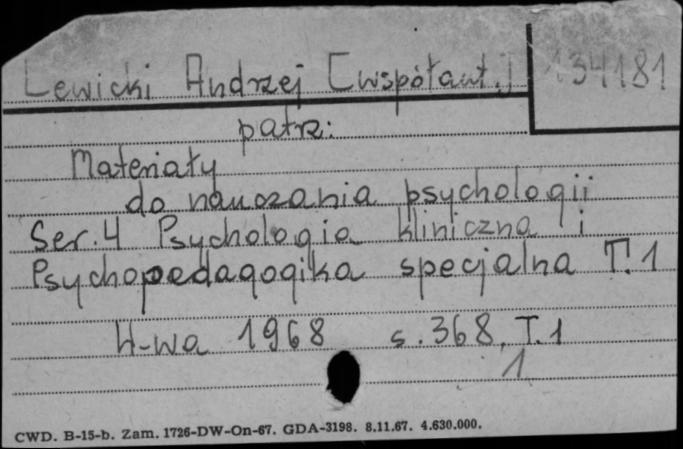 Lewicki Andrzej [współaut.] 134181
patrz:
Materiały
do nauczania psychologii
Ser. 4 Psychologia kliniczna i
Psychopedagogika specjalna T. 1
W-wa 1968 s. 368, T. 1
1
CWD. B-15-b. Zam. 1726-DW-On-67. GDA-3198. 8.11.67. 4.630.000.